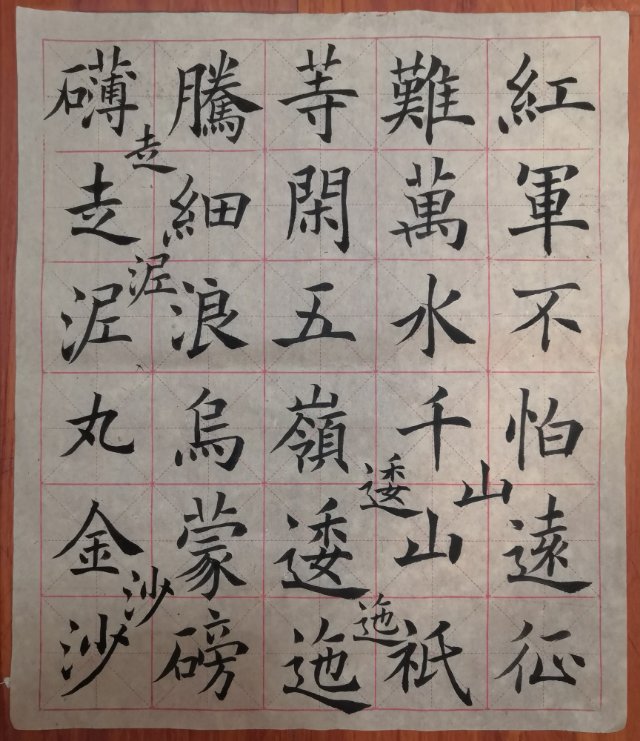 紅軍不怕遠征
山
難萬水千山祇
逶
迤
等閑五嶺逶迤
騰細浪烏蒙磅
走
泥
沙
礴走泥丸金沙